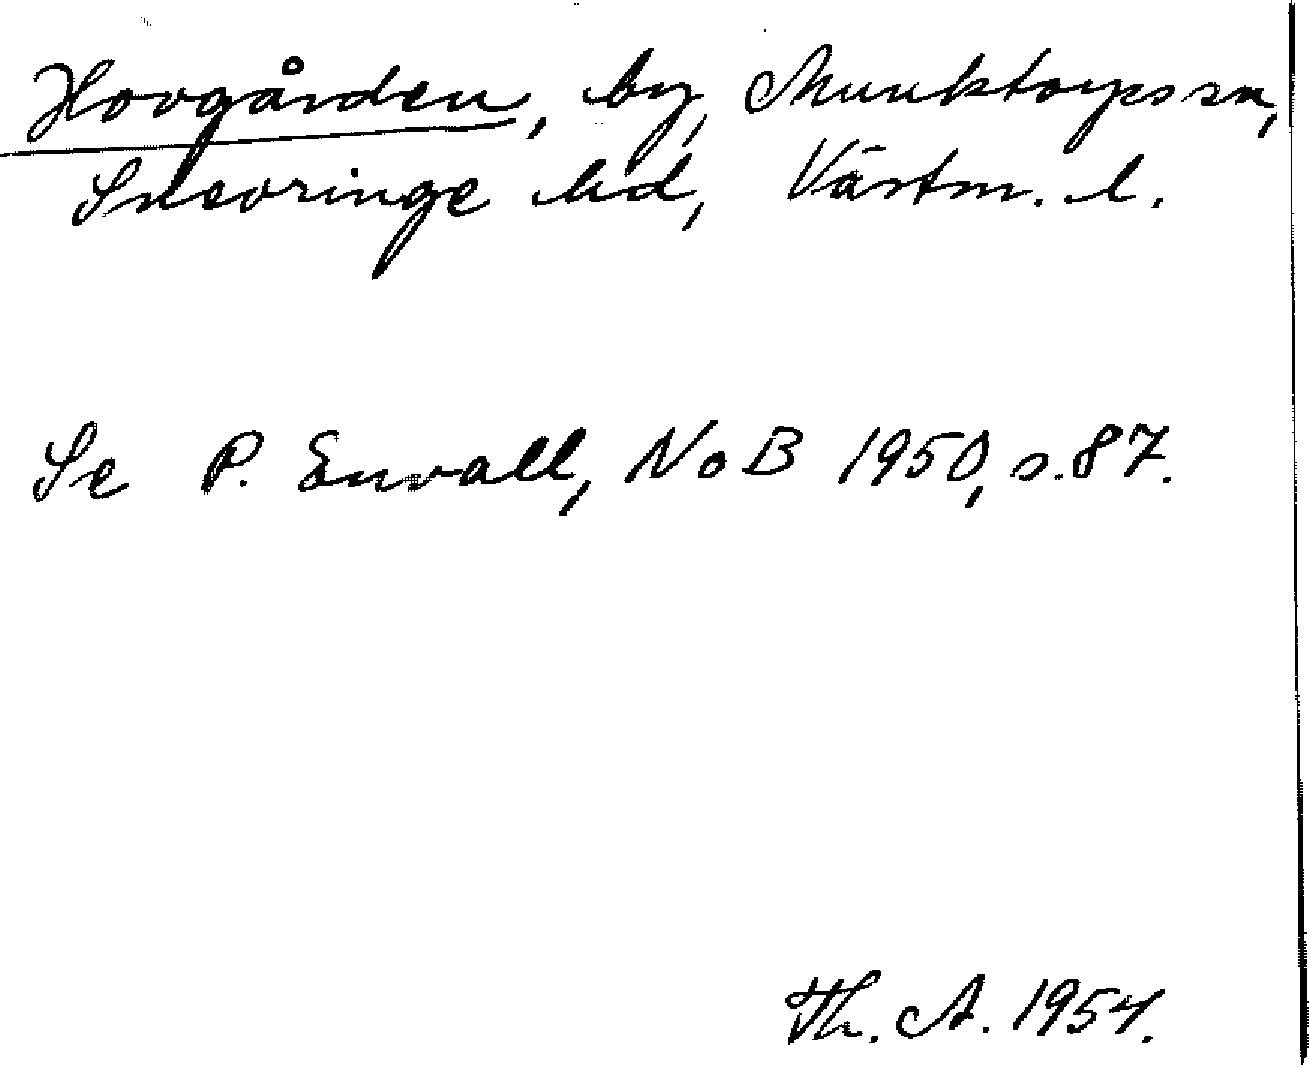 Hovgården, by, Munktorps sn,
Snevringe hd, Västm. l.
Se P. Envall, NoB 1950, s. 87.
Th. A. 1954.